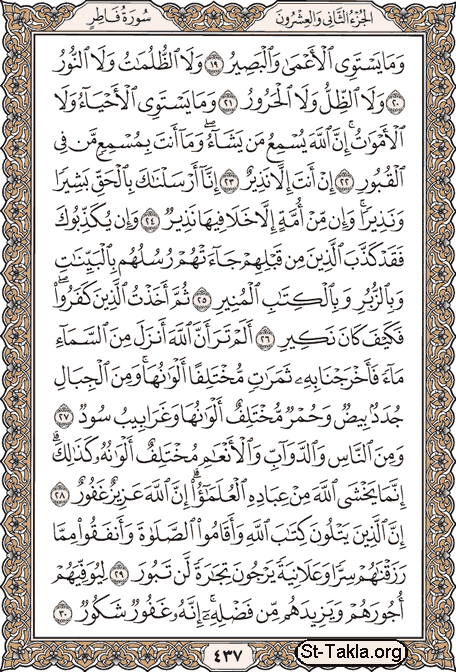 الجُزْءُ الثَّانِي وَالعِشْرُونَ سُورَةُ فَاطِر
وَمَا يَسْتَوِى ٱلْأَعْمَىٰ وَٱلْبَصِيرُ ١٩ وَلَا ٱلظُّلُمَٰتُ وَلَا ٱلنُّورُ
٢٠ وَلَا ٱلظِّلُّ وَلَا ٱلْحَرُورُ ٢١ وَمَا يَسْتَوِى ٱلْأَحْيَآءُ وَلَا
ٱلْأَمْوَٰتُ ۚ إِنَّ ٱللَّهَ يُسْمِعُ مَن يَشَآءُ ۖ وَمَآ أَنتَ بِمُسْمِعٍ مَّن فِى
ٱلْقُبُورِ ٢٢ إِنْ أَنتَ إِلَّا نَذِيرٌ ٢٣ إِنَّآ أَرْسَلْنَٰكَ بِٱلْحَقِّ بَشِيرًا
وَنَذِيرًا ۚ وَإِن مِّنْ أُمَّةٍ إِلَّا خَلَا فِيهَا نَذِيرٌ ٢٤ وَإِن يُكَذِّبُوكَ
فَقَدْ كَذَّبَ ٱلَّذِينَ مِن قَبْلِهِمْ جَآءَتْهُمْ رُسُلُهُم بِٱلْبَيِّنَٰتِ
وَبِٱلزُّبُرِ وَبِٱلْكِتَٰبِ ٱلْمُنِيرِ ٢٥ ثُمَّ أَخَذْتُ ٱلَّذِينَ كَفَرُوا۟ ۖ
فَكَيْفَ كَانَ نَكِيرِ ٢٦ أَلَمْ تَرَ أَنَّ ٱللَّهَ أَنزَلَ مِنَ ٱلسَّمَآءِ
مَآءً فَأَخْرَجْنَا بِهِۦ ثَمَرَٰتٍ مُّخْتَلِفًا أَلْوَٰنُهَا ۚ وَمِنَ ٱلْجِبَالِ
جُدَدٌۢ بِيضٌ وَحُمْرٌ مُّخْتَلِفٌ أَلْوَٰنُهَا وَغَرَابِيبُ سُودٌ ٢٧
وَمِنَ ٱلنَّاسِ وَٱلدَّوَآبِّ وَٱلْأَنْعَٰمِ مُخْتَلِفٌ أَلْوَٰنُهُۥ كَذَٰلِكَ ۗ
إِنَّمَا يَخْشَى ٱللَّهَ مِنْ عِبَادِهِ ٱلْعُلَمَٰٓؤُا۟ ۗ إِنَّ ٱللَّهَ عَزِيزٌ غَفُورٌ ٢٨
إِنَّ ٱلَّذِينَ يَتْلُونَ كِتَٰبَ ٱللَّهِ وَأَقَامُوا۟ ٱلصَّلَوٰةَ وَأَنفَقُوا۟ مِمَّا
رَزَقْنَٰهُمْ سِرًّا وَعَلَانِيَةً يَرْجُونَ تِجَٰرَةً لَّن تَبُورَ ٢٩ لِيُوَفِّيَهُمْ
أُجُورَهُمْ وَيَزِيدَهُم مِّن فَضْلِهِۦٓ ۚ إِنَّهُۥ غَفُورٌ شَكُورٌ ٣٠
٤٣٧
St-Takla.org